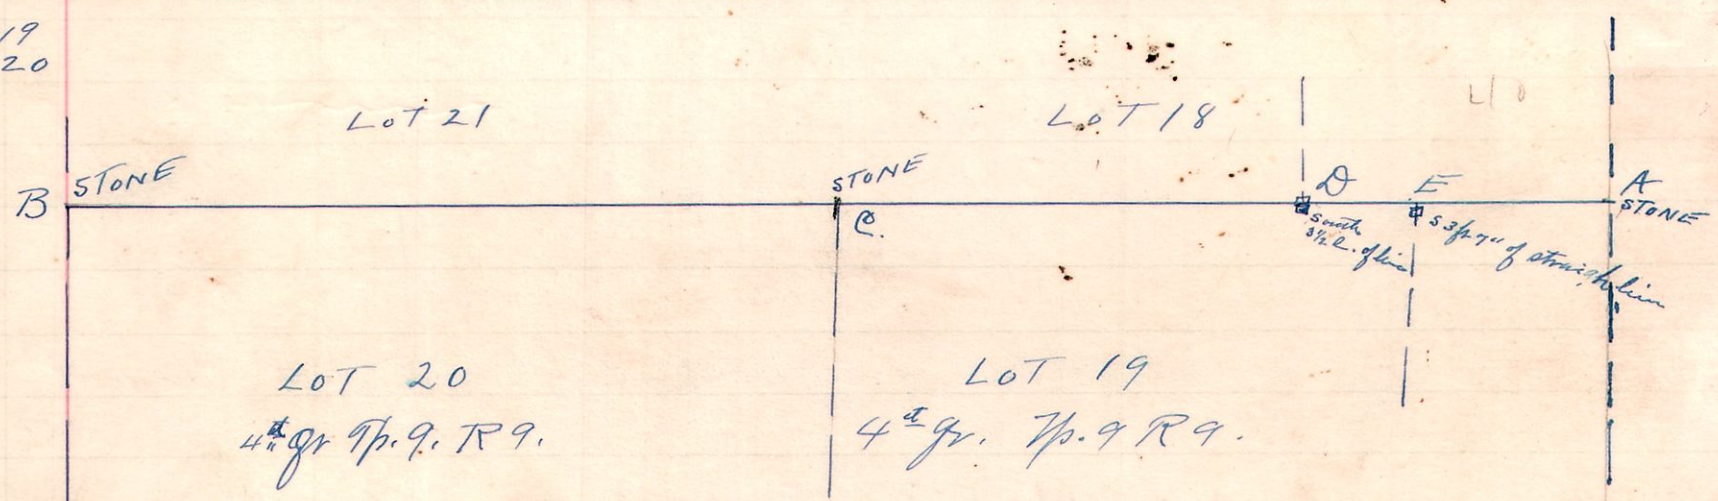 19
20
LOT 21
LOT 18
B STONE
STONE
C.
D
south
3½ l. of line
E
S 3 ft 7" of straight line
A
STONE
LOT 20
4th qr Tp. 9. R 9.
LOT 19
4th qr. Tp. 9 R 9.